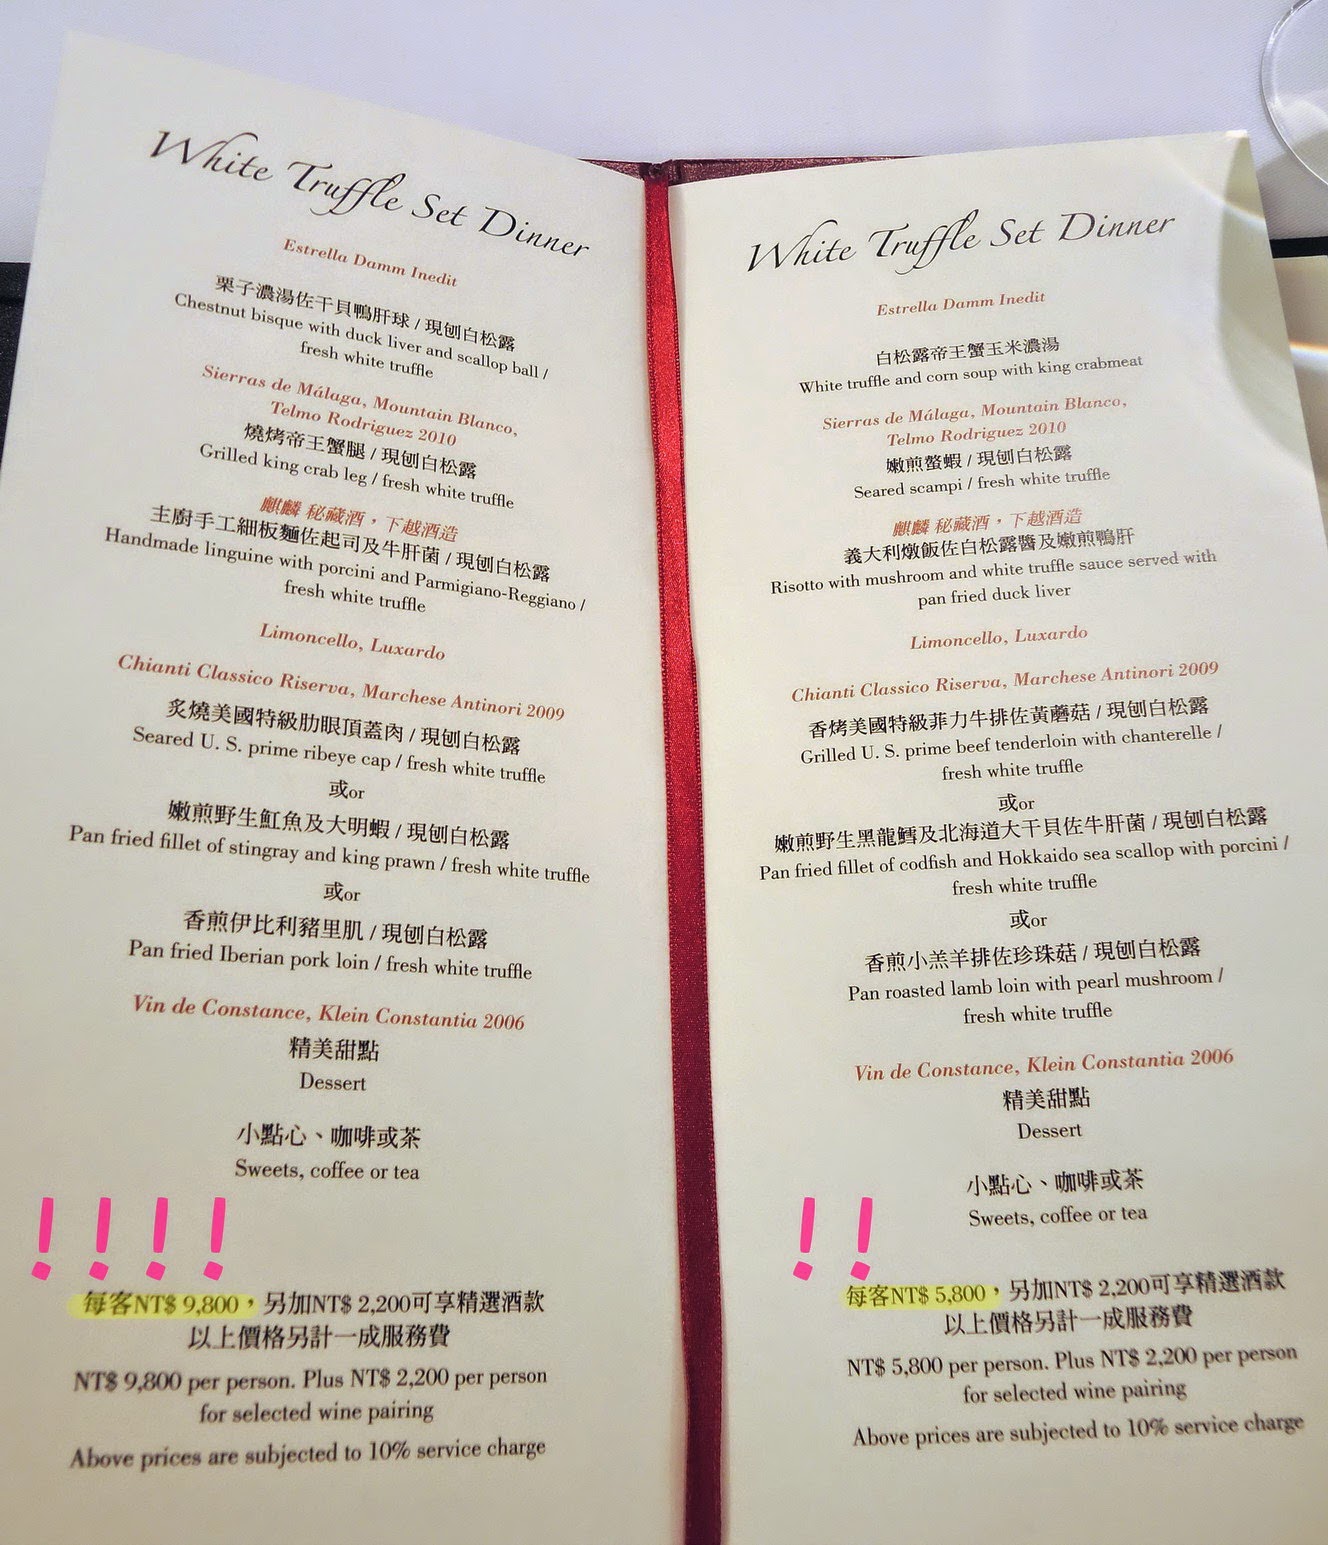 White Truffle Set Dinner
Estrella Damm Inedit
栗子濃湯佐干貝鴨肝球 / 現刨白松露
Chestnut bisque with duck liver and scallop ball /
fresh white truffle
Sierras de Málaga, Mountain Blanco,
Telmo Rodriguez 2010
燒烤帝王蟹腿 / 現刨白松露
Grilled king crab leg / fresh white truffle
麒麟 秘藏酒，下越酒造
主廚手工細板麵佐起司及牛肝菌 / 現刨白松露
Handmade linguine with porcini and Parmigiano-Reggiano /
fresh white truffle
Limoncello, Luxardo
Chianti Classico Riserva, Marchese Antinori 2009
炙燒美國特級肋眼頂蓋肉 / 現刨白松露
Seared U. S. prime ribeye cap / fresh white truffle
或or
嫩煎野生魟魚及大明蝦 / 現刨白松露
Pan fried fillet of stingray and king prawn / fresh white truffle
或or
香煎伊比利豬里肌 / 現刨白松露
Pan fried Iberian pork loin / fresh white truffle
Vin de Constance, Klein Constantia 2006
精美甜點
Dessert
小點心、咖啡或茶
Sweets, coffee or tea
!!!!
每客NT$ 9,800，另加NT$ 2,200可享精選酒款
以上價格另計一成服務費
NT$ 9,800 per person. Plus NT$ 2,200 per person
for selected wine pairing
Above prices are subjected to 10% service charge
White Truffle Set Dinner
Estrella Damm Inedit
白松露帝王蟹玉米濃湯
White truffle and corn soup with king crabmeat
Sierras de Málaga, Mountain Blanco,
Telmo Rodriguez 2010
嫩煎螯蝦 / 現刨白松露
Seared scampi / fresh white truffle
麒麟 秘藏酒，下越酒造
義大利燉飯佐白松露醬及嫩煎鴨肝
Risotto with mushroom and white truffle sauce served with
pan fried duck liver
Limoncello, Luxardo
Chianti Classico Riserva, Marchese Antinori 2009
香烤美國特級菲力牛排佐黃蘑菇 / 現刨白松露
Grilled U. S. prime beef tenderloin with chanterelle /
fresh white truffle
或or
嫩煎野生黑龍鱈及北海道大干貝佐牛肝菌 / 現刨白松露
Pan fried fillet of codfish and Hokkaido sea scallop with porcini /
fresh white truffle
或or
香煎小羔羊排佐珍珠菇 / 現刨白松露
Pan roasted lamb loin with pearl mushroom /
fresh white truffle
Vin de Constance, Klein Constantia 2006
精美甜點
Dessert
小點心、咖啡或茶
Sweets, coffee or tea
!!
每客NT$ 5,800，另加NT$ 2,200可享精選酒款
以上價格另計一成服務費
NT$ 5,800 per person. Plus NT$ 2,200 per person
for selected wine pairing
Above prices are subjected to 10% service charge